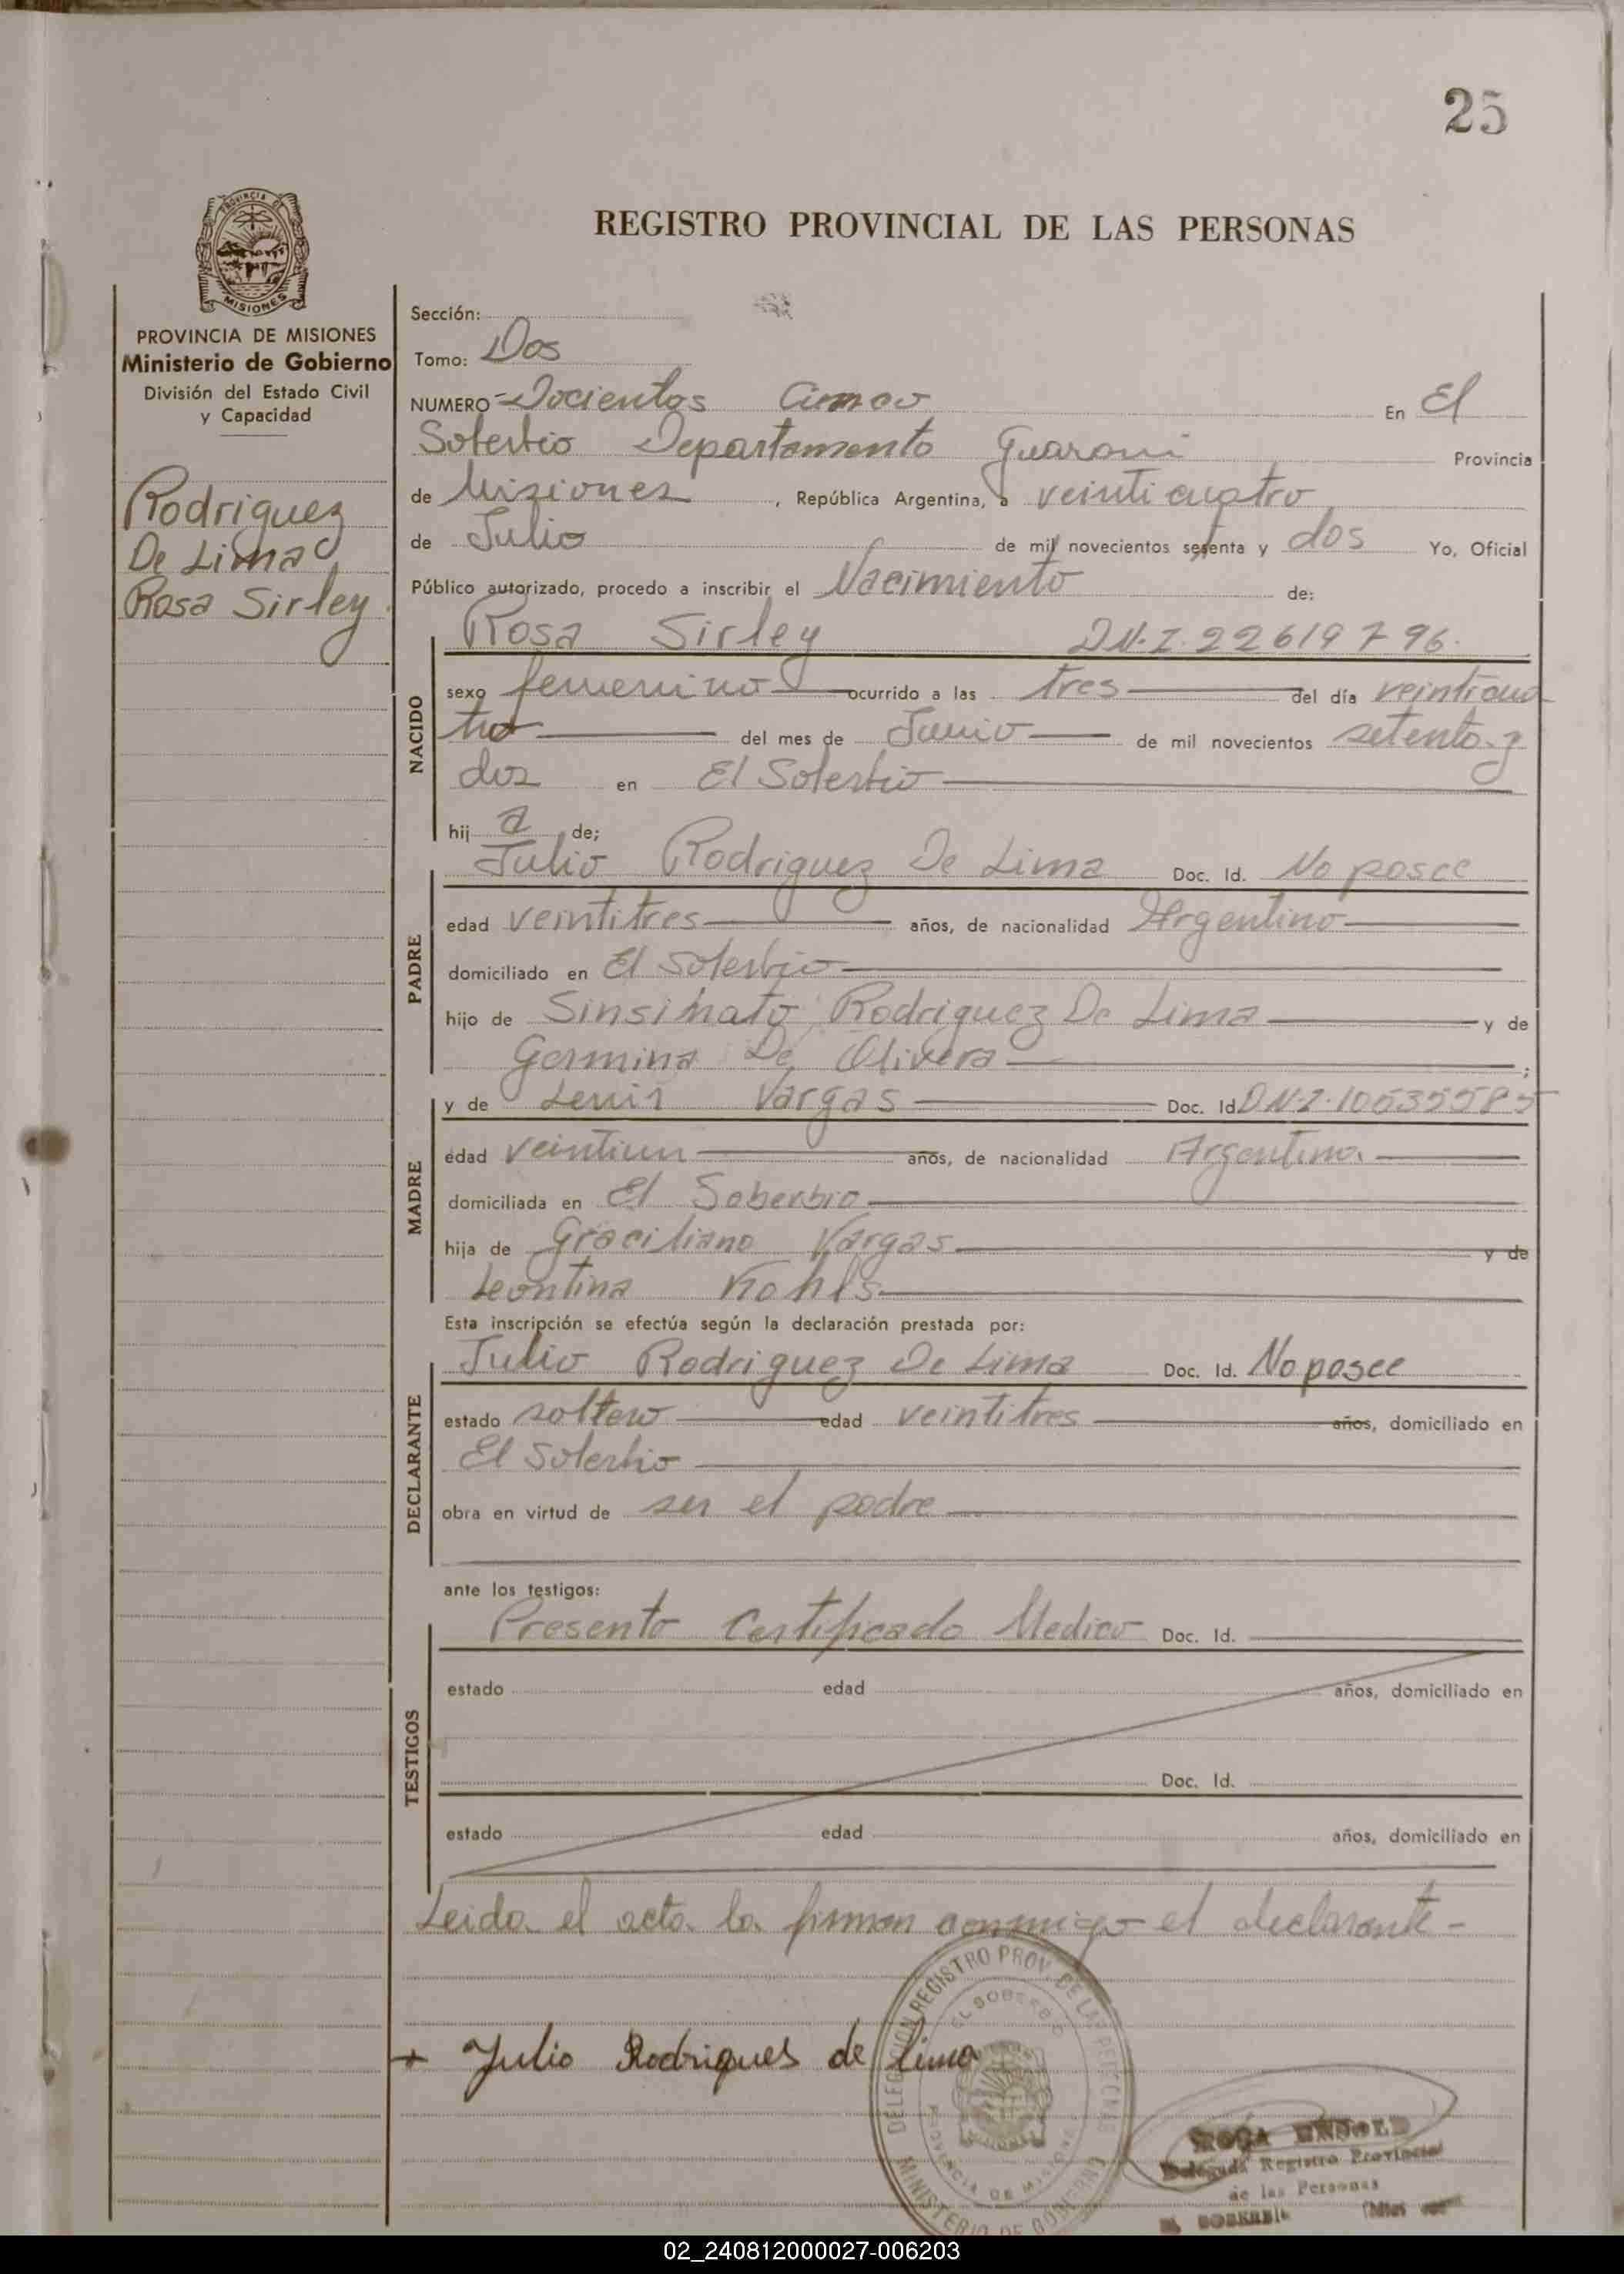 25
REGISTRO PROVINCIAL DE LAS PERSONAS
PROVINCIA DE MISIONES
Ministerio de Gobierno
División del Estado Civil
y Capacidad
Rodriguez
De Lima
Rosa Sirley
Sección:
Tomo: Dos
NUMERO Docientos Cinco En El
Soberbio Departamento Guarani Provincia
de Misiones, República Argentina, a veinticuatro
de Julio de mil novecientos setenta y dos Yo, Oficial
Público autorizado, procedo a inscribir el Nacimiento de:
Rosa Sirley D.N.I. 22619796.
NACIDO
sexo femenino ocurrido a las tres del día veinticua
tro del mes de Junio de mil novecientos setenta y
dos en El Soberbio
hij a de;
PADRE
Julio Rodriguez De Lima Doc. Id. No posee
edad veintitres años, de nacionalidad Argentino
domiciliado en El Soberbio
hijo de Rodriguez De Lima y de
Germina De Olivera ;
MADRE
y de Vargas Doc. Id D.N.I. 10535585
edad veintiun años, de nacionalidad Argentina
domiciliada en El Soberbio
hija de Graciliano Vargas y de
Leontina Kohls
Esta inscripción se efectúa según la declaración prestada por:
DECLARANTE
Julio Rodriguez De Lima Doc. Id. No posee
estado soltero edad veintitres años, domiciliado en
El Soberbio
obra en virtud de ser el padre
ante los testigos:
TESTIGOS
Presento Certificado Medico Doc. Id.
estado edad años, domiciliado en
Doc. Id.
estado edad años, domiciliado en
Leida el acta la firman conmigo el declarante -
+ Julio Rodrigues de lima
DELEGACION REGISTRO PROV. DE LAS PERSONAS
EL SOBERBIO
PROVINCIA DE MISIONES
MINISTERIO DE GOBIERNO
Delegada Registro Provincial
de las Personas
02_240812000027-006203